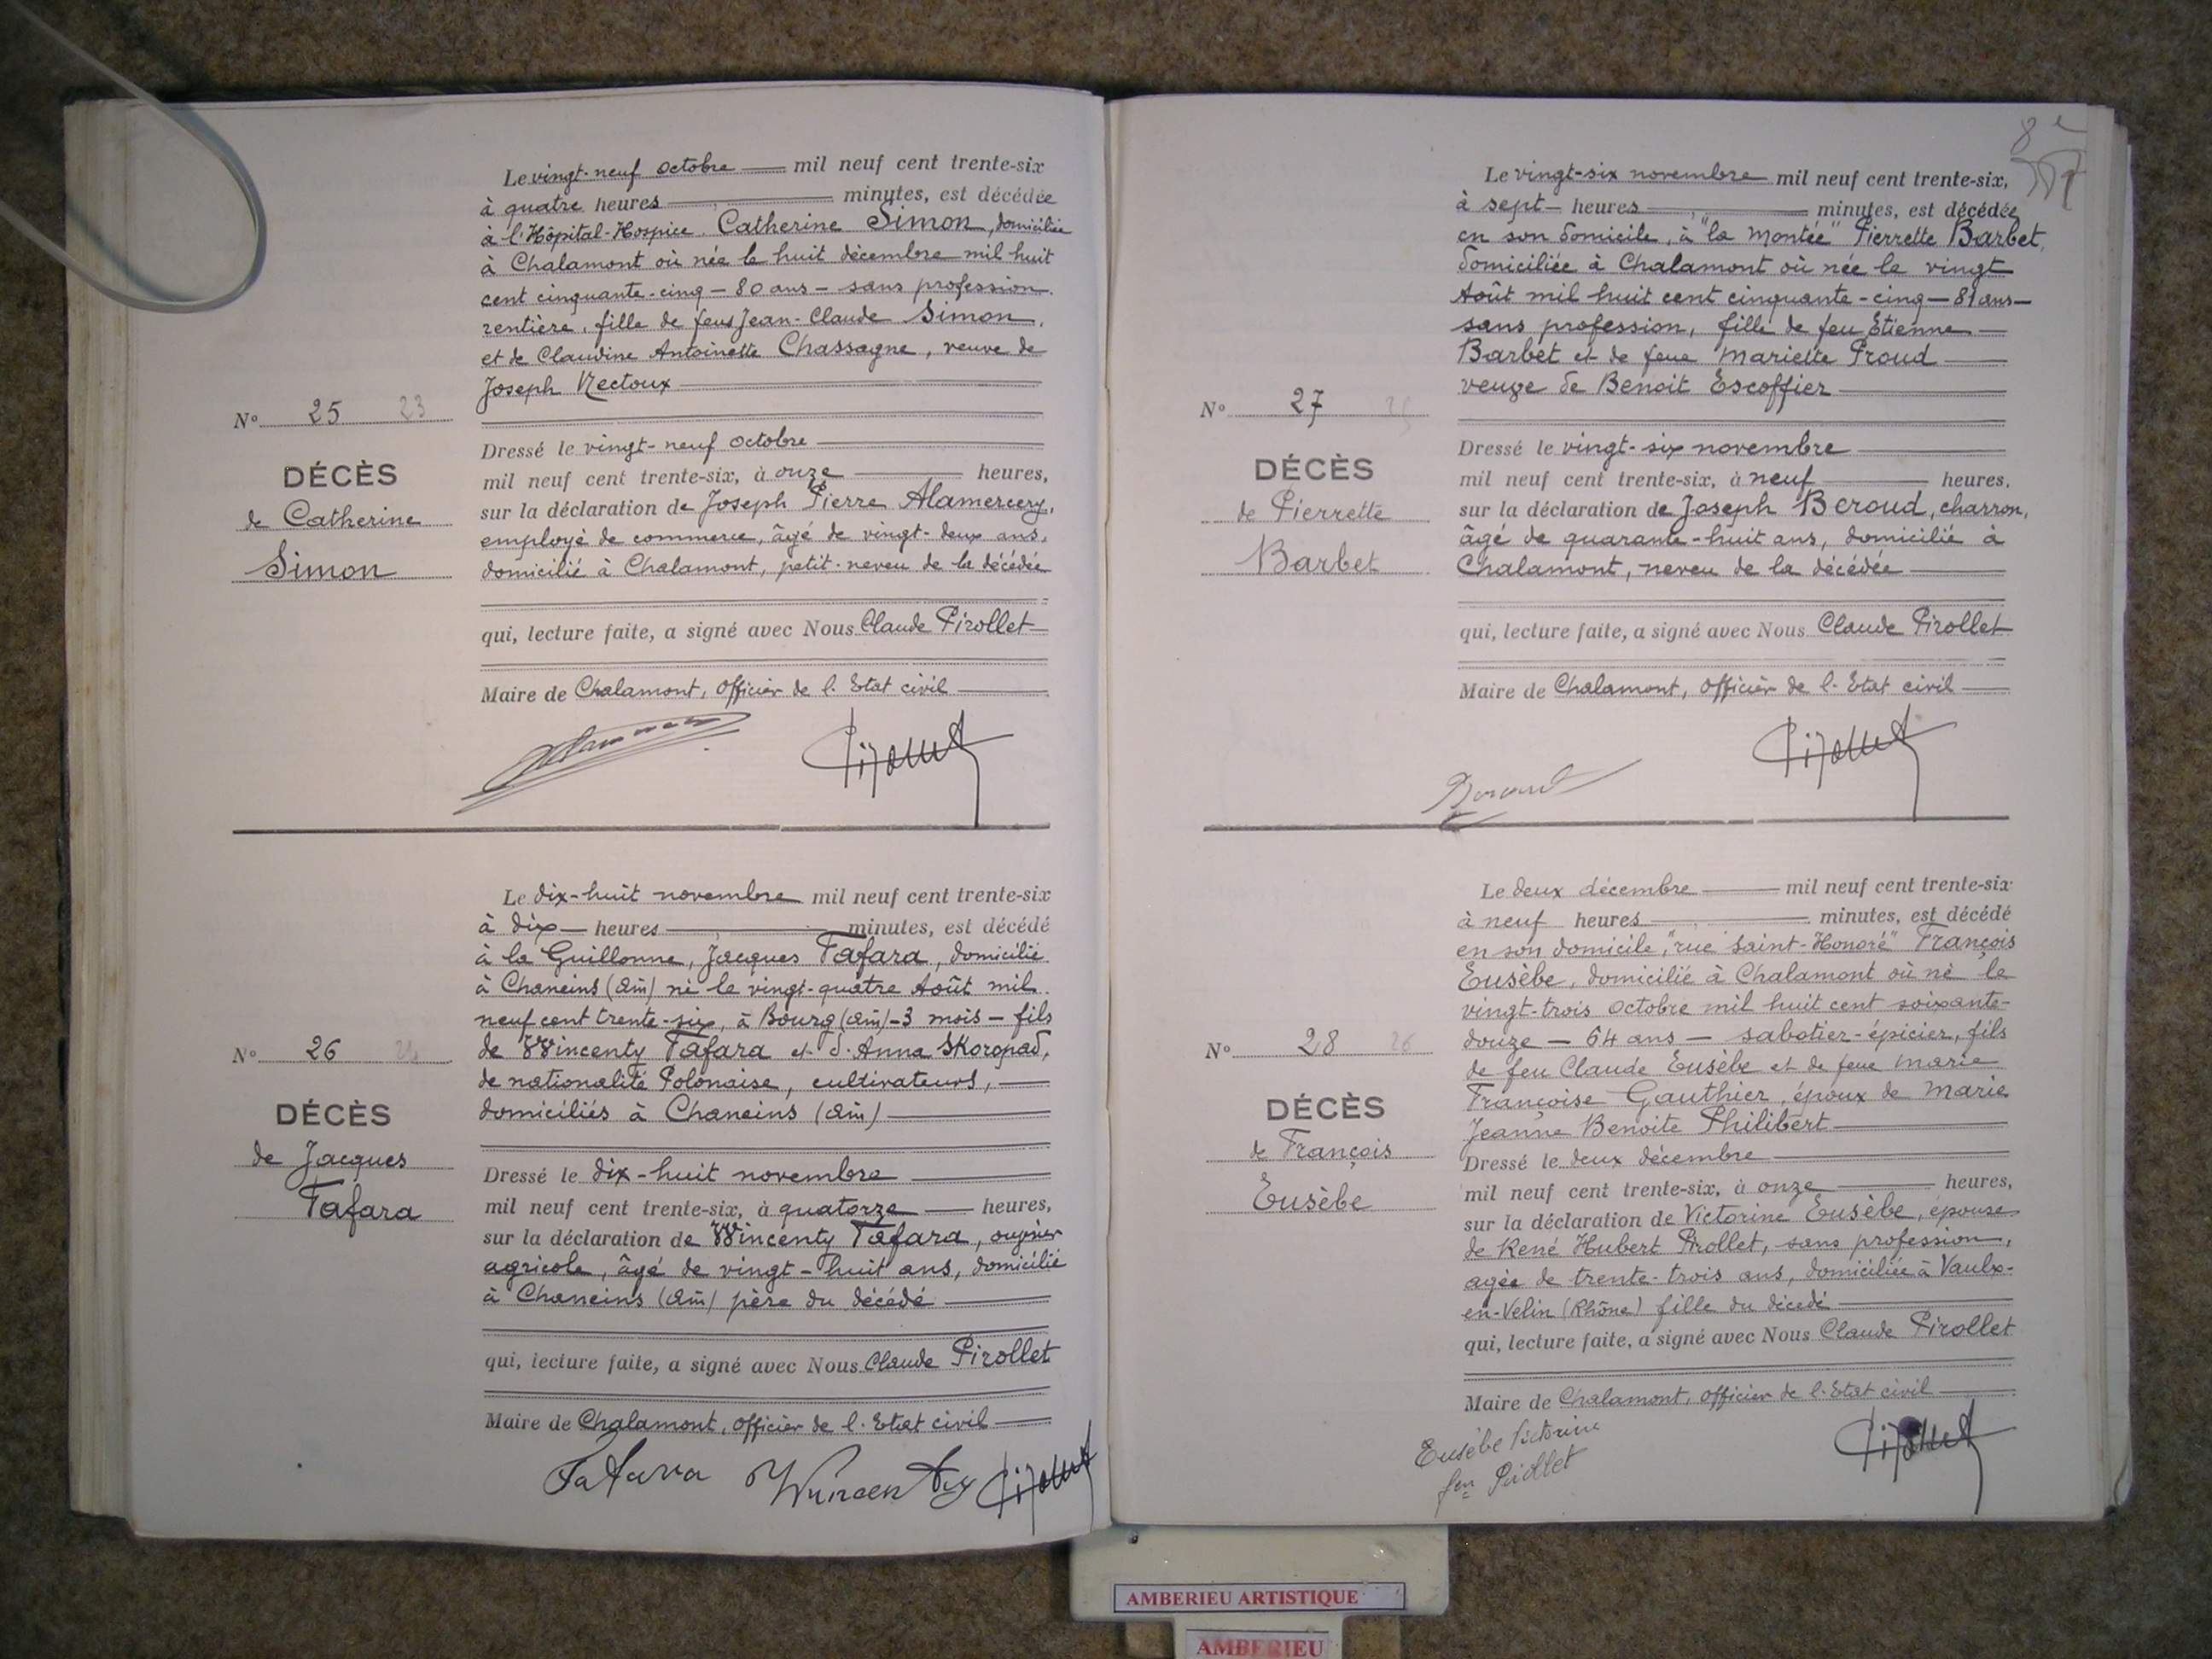 Le vingt-neuf octobre mil neuf cent trente-six
à quatre heures minutes, est décédée
à l'Hôpital-Hospice Catherine Simon, domiciliée
à Chalamont où née le huit décembre mil huit
cent cinquante-cinq - 80 ans - sans profession
rentière, fille de feus Jean-Claude Simon,
et de Claudine Antoinette Chassagne, veuve de
Joseph Rectoux
N° 25 23
DÉCÈS
de Catherine
Simon
Dressé le vingt-neuf octobre
mil neuf cent trente-six, à onze heures,
sur la déclaration de Joseph Pierre Alamercery,
employé de commerce, âgé de vingt-deux ans,
domicilié à Chalamont, petit-neveu de la décédée
qui, lecture faite, a signé avec Nous Claude Pirollet
Maire de Chalamont, officier de l'Etat civil
Le dix-huit novembre mil neuf cent trente-six
à dix heures minutes, est décédé
à la Guillonne, Jacques Tafara, domicilié
à Chaneins (Ain) né le vingt-quatre Août mil
neuf cent trente-six, à Bourg (Ain) - 3 mois - fils
de Wincenty Tafara et d'Anna Skoropad,
de nationalité Polonaise, cultivateurs,
domiciliés à Chaneins (Ain)
N° 26 24
DÉCÈS
de Jacques
Tafara
Dressé le dix-huit novembre
mil neuf cent trente-six, à quatorze heures,
sur la déclaration de Wincenty Tafara, ouvrier
agricole, âgé de vingt-huit ans, domicilié
à Chaneins (Ain) père du décédé
qui, lecture faite, a signé avec Nous Claude Pirollet
Maire de Chalamont, officier de l'Etat civil
Tafara Wincenty Pirollet
8e
Le vingt-six novembre mil neuf cent trente-six,
à sept heures minutes, est décédée
en son domicile, à "la Montée" Pierrette Barbet,
domiciliée à Chalamont où née le vingt
Août mil huit cent cinquante-cinq - 81 ans -
sans profession, fille de feu Etienne
Barbet et de feue Mariette Proud
veuve de Benoit Escoffier
N° 27 25
DÉCÈS
de Pierrette
Barbet
Dressé le vingt-six novembre
mil neuf cent trente-six, à neuf heures,
sur la déclaration de Joseph Beroud, charron,
âgé de quarante-huit ans, domicilié à
Chalamont, neveu de la décédée
qui, lecture faite, a signé avec Nous Claude Pirollet
Maire de Chalamont, officier de l'Etat civil
Beroud Pirollet
Le deux décembre mil neuf cent trente-six
à neuf heures minutes, est décédé
en son domicile, "rue Saint-Honoré" François
Eusèbe, domicilié à Chalamont où né le
vingt-trois octobre mil huit cent soixante-
douze - 64 ans - sabotier-épicier, fils
de feu Claude Eusèbe et de feue Marie
Françoise Gauthier, époux de Marie
Jeanne Benoite Philibert
N° 28 26
DÉCÈS
de François
Eusèbe
Dressé le deux décembre
mil neuf cent trente-six, à onze heures,
sur la déclaration de Victorine Eusèbe, épouse
de René Hubert Pirollet, sans profession,
agée de trente-trois ans, domiciliée à Vaulx-
en-Velin (Rhône) fille du décédé
qui, lecture faite, a signé avec Nous Claude Pirollet
Maire de Chalamont, officier de l'Etat civil
Eusèbe Victorine
fem Pirollet
Pirollet
AMBERIEU ARTISTIQUE
AMBERIEU